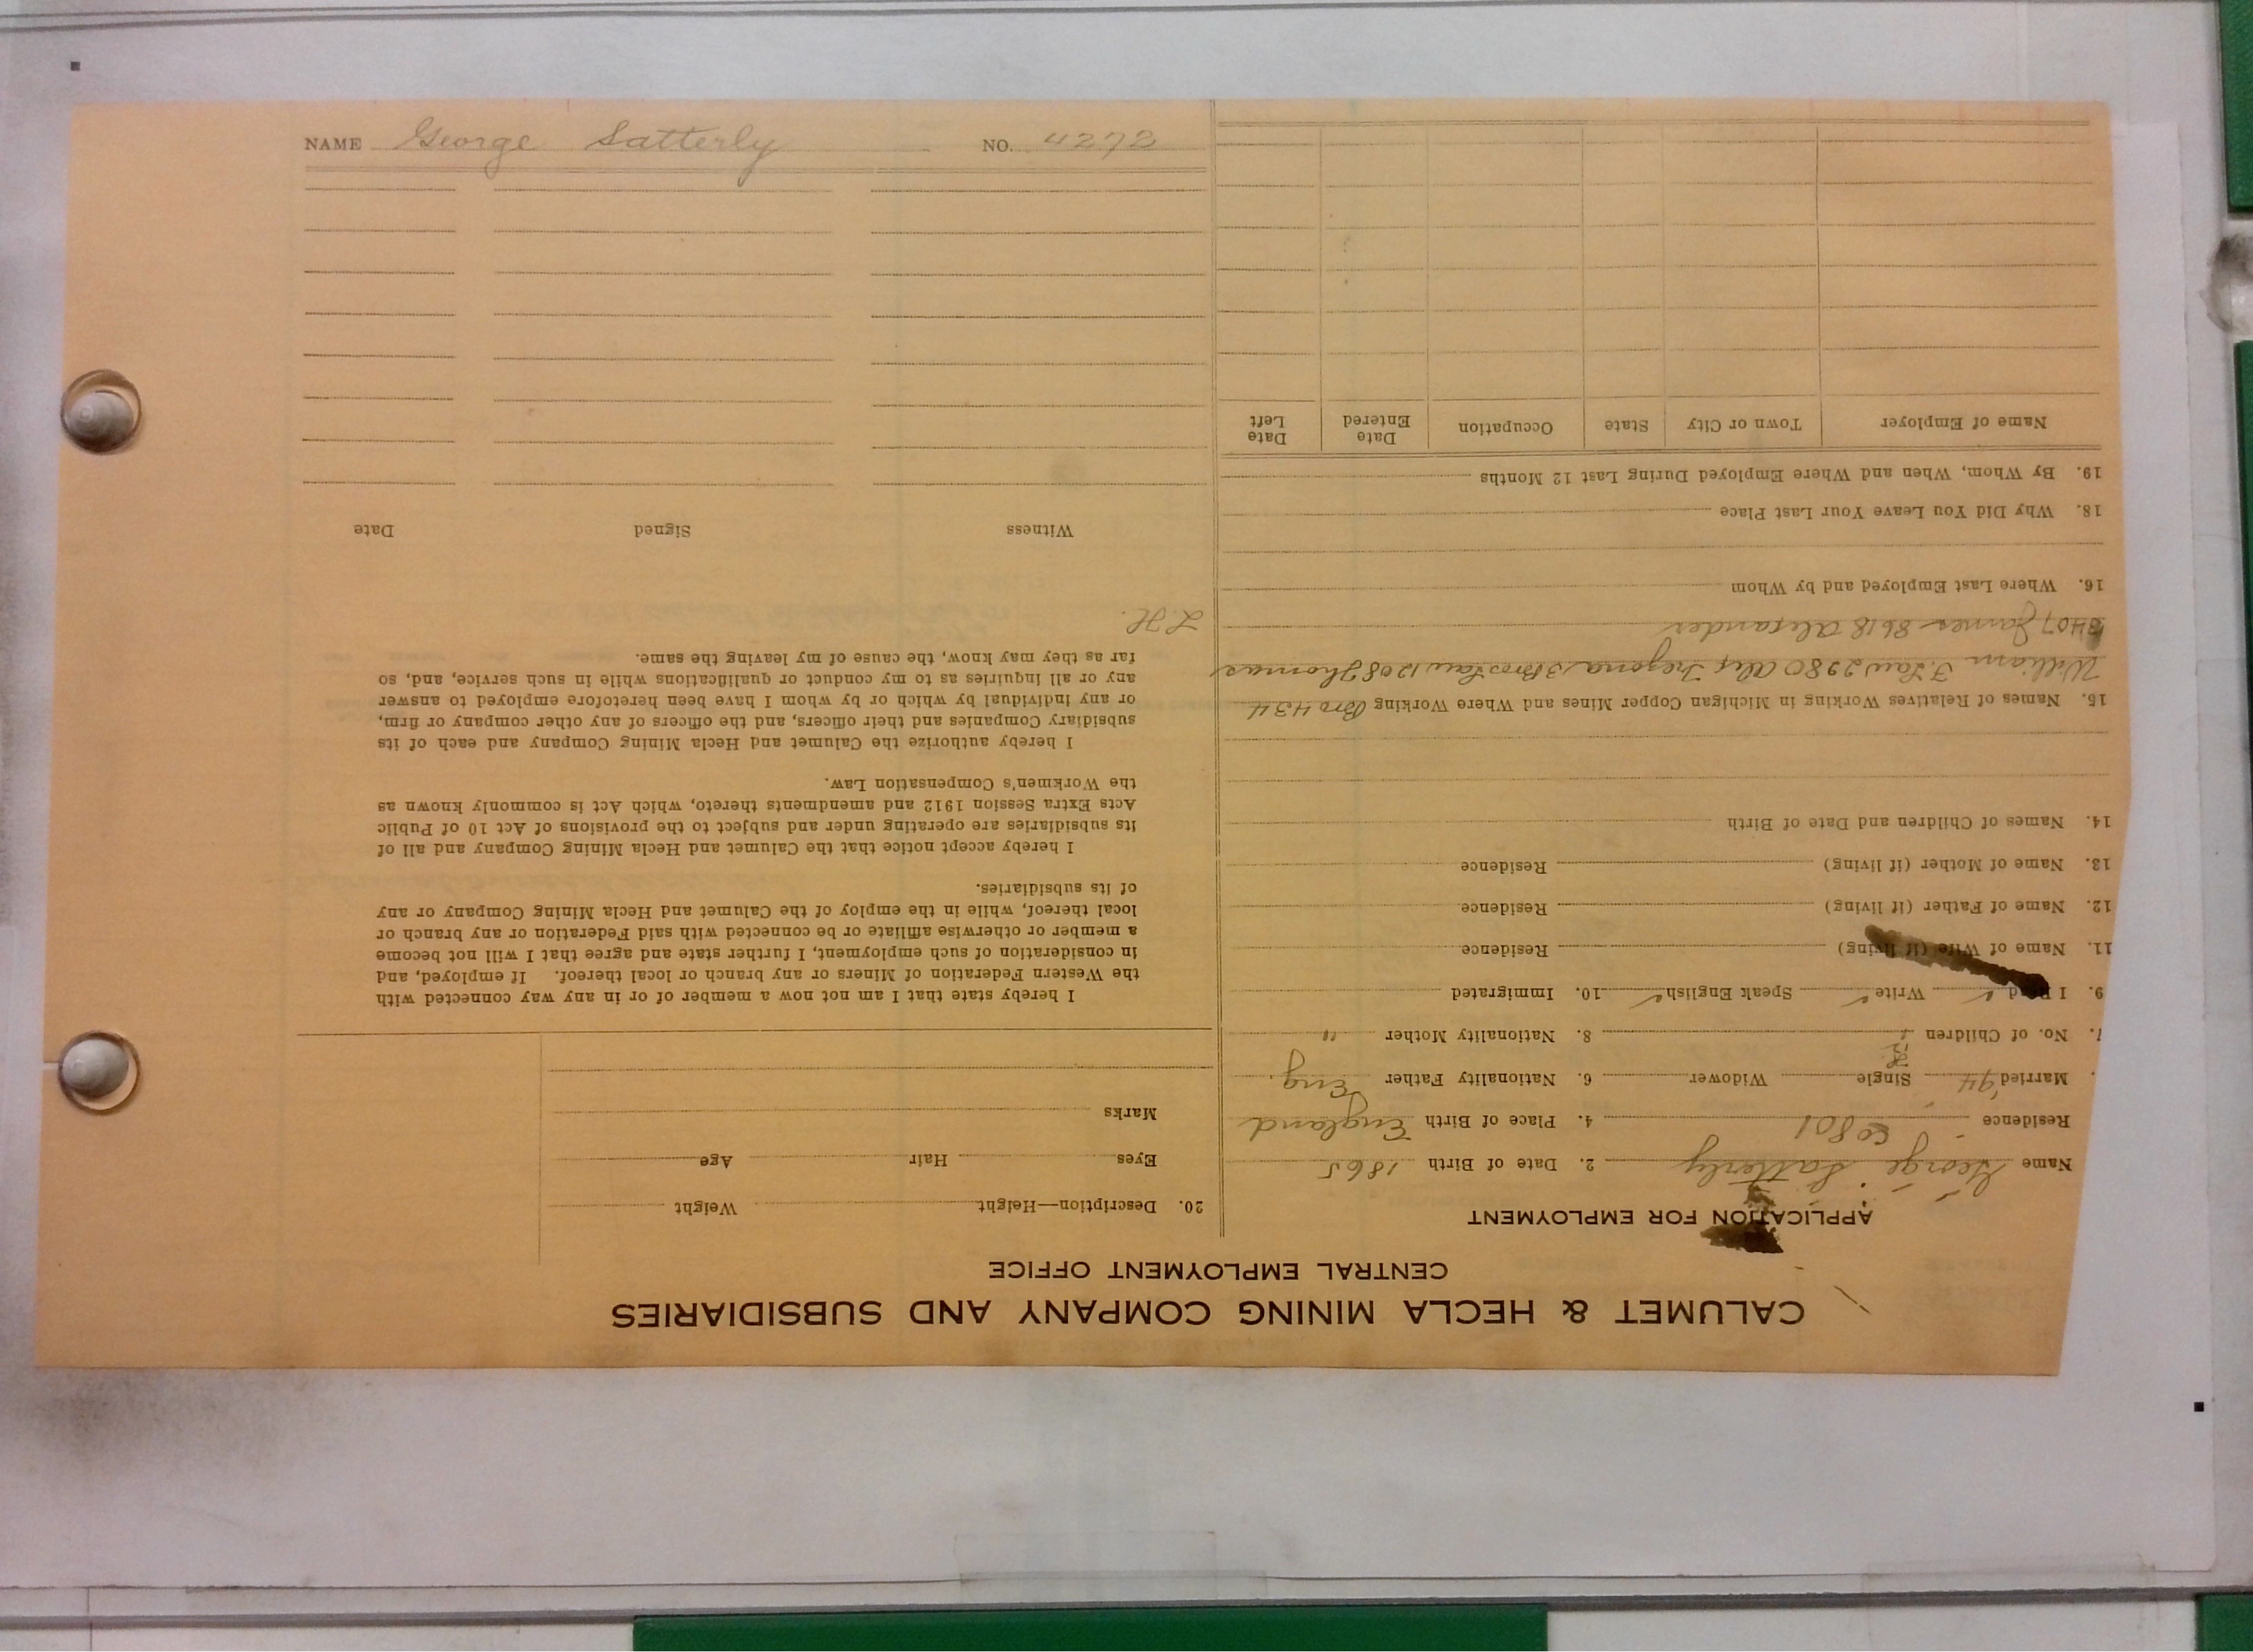 NAME George Satterly NO. 4272
CALUMET & HECLA MINING COMPANY AND SUBSIDIARIES
CENTRAL EMPLOYMENT OFFICE
APPLICATION FOR EMPLOYMENT
Name George Satterly 2. Date of Birth 1865
Residence 801 4. Place of Birth England
Married '94 Single Widower 6. Nationality Father Eng.
7. No. of Children 8. Nationality Mother "
9. I Read ✓ Write ✓ Speak English ✓ 10. Immigrated
11. Name of Wife (if living) Residence
12. Name of Father (if living) Residence
13. Name of Mother (if living) Residence
14. Names of Children and Date of Birth
15. Names of Relatives Working in Michigan Copper Mines and Where Working Bro 434
William F. Law 2980 Alex Tregona 3 Bros Law 1208 Thomas
3407 James 8618 Alexander
16. Where Last Employed and by Whom
18. Why Did You Leave Your Last Place
19. By Whom, When and Where Employed During Last 12 Months
Name of Employer Town or City State Occupation Date Entered Date Left
20. Description—Height Weight
Eyes Hair Age
Marks
I hereby state that I am not now a member of or in any way connected with
the Western Federation of Miners or any branch or local thereof. If employed, and
in consideration of such employment, I further state and agree that I will not become
a member or otherwise affiliate or be connected with said Federation or any branch or
local thereof, while in the employ of the Calumet and Hecla Mining Company or any
of its subsidiaries.
I hereby accept notice that the Calumet and Hecla Mining Company and all of
its subsidiaries are operating under and subject to the provisions of Act 10 of Public
Acts Extra Session 1912 and amendments thereto, which Act is commonly known as
the Workmen's Compensation Law.
I hereby authorize the Calumet and Hecla Mining Company and each of its
subsidiary Companies and their officers, and the officers of any other company or firm,
or any individual by which or by whom I have been heretofore employed to answer
any or all inquiries as to my conduct or qualifications while in such service, and, so
far as they may know, the cause of my leaving the same.
L. H.
Witness Signed Date